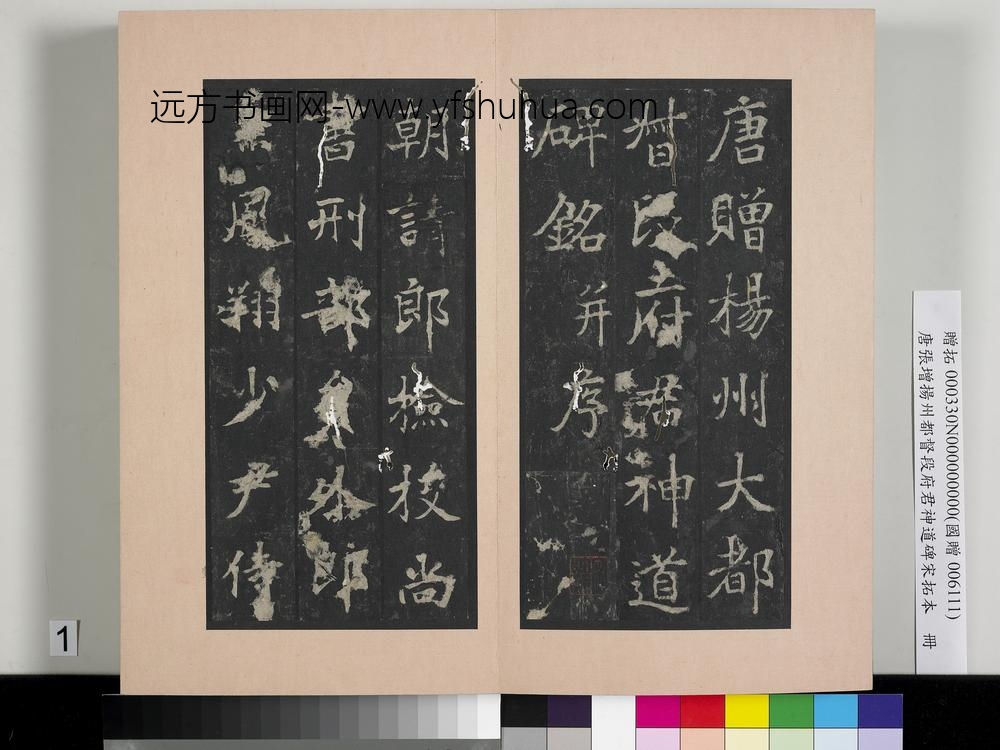 远方书画网-www.yfshuhua.com
唐贈楊州大都
督段府君神道
碑銘并序
朝請郎撿挍尚
書刑部員外郎
兼鳳翔少尹侍
贈拓 000330N000000000(國贈 006111)
唐張增揚州都督段府君神道碑宋拓本 冊
1